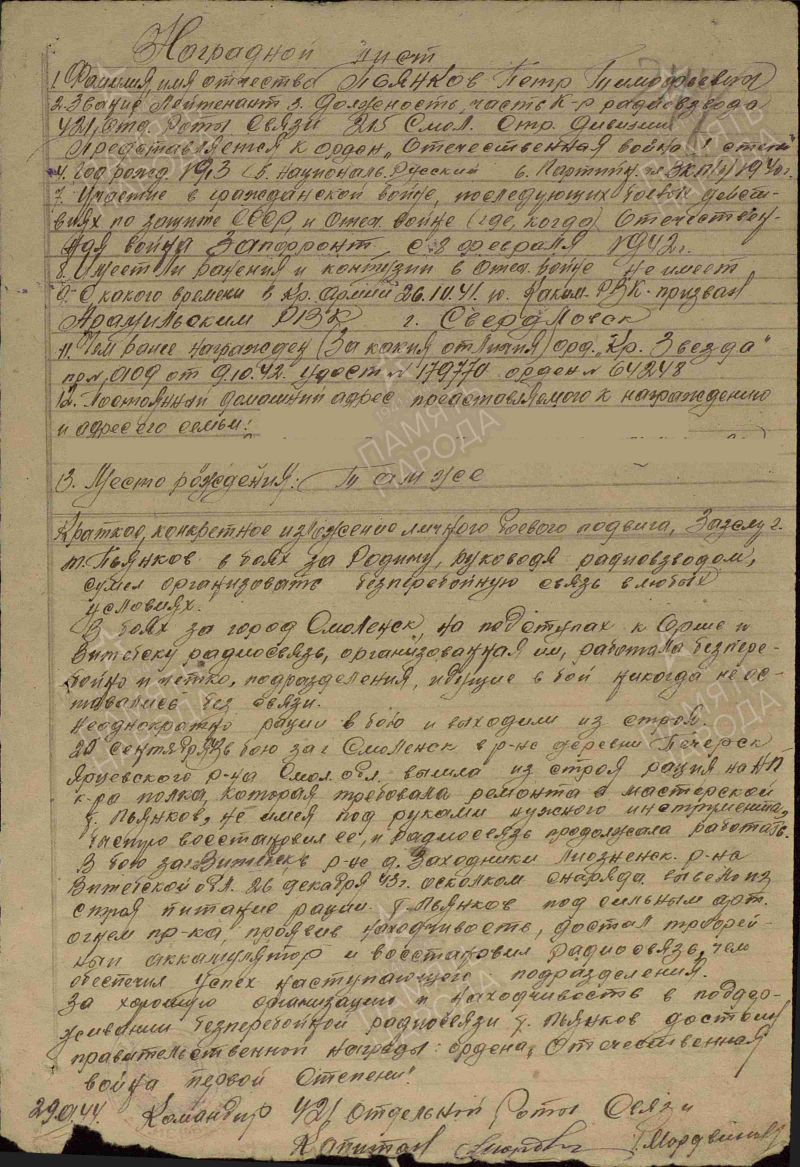 Наградной лист
1. Фамилия, имя отчество Пьянков Петр Тимофеевич
2. Звание Лейтенант 3. Должность, часть К-р радиовзвода
421 Отд. Роты Связи 215 Смол. Стр. Дивизии
Представляется к орден „Отечественная война 1 степени"
4. Год рожд. 1913 5. Националь. Русский 6. Партийн. 1940г.
7. Участие в гражданской войне, последующих боевых действ-
иях по защите СССР, и Отеч. войне (где, когда) Отечествен-
ная война Запфронт с 8 февраля 1942г.
8. Имеет ли ранения и контузии в Отеч. войне Не имеет
9. С какого времени в Кр. Армии 26.10.41. 10. Каким РВК призван
Арамильским РВК г. Свердловск
11. Чем ранее награжден (За какия отличия) орд. „Кр. Звезда"
от 9.10.42. удост № 179770 орден № 64248
12. Постоянный домашний адрес представляемого к награждению
и адрес его семьи:
13. Место рождения: Там же
Краткое, конкретное изложение личного боевого подвига, Заслуг.
т. Пьянков в боях за Родину, руководя радиовзводом,
сумел организовать безперебойную связь в любых
условиях.
В боях за город Смоленск, на подступах к Орше и
Витебску радиосвязь, организованная им, работала безпере-
бойно и четко, подразделения, идущие в бой никогда не ос-
тавались без связи.
Неоднократно рации в бою и выходили из строя.
20 сентября в бою за г Смоленск в р-не деревни Печерск
Ярцевского р-на Смол. обл. вышла из строя рация на НП
к-ра полка, которая требовала ремонта в мастерской
т. Пьянков, не имея под руками нужного инструмента,
быстро восстановил ее, и радиосвязь продолжала работать.
В бою за г Витебск, в р-не д. Заходники Лиозненск. р-на
Витебской обл. 26 декабря 43г. осколком снаряда вывело из
строя питание рации. т. Пьянков под сильным арт.
огнем пр-ка, проявив находчивость, достал трофей-
ный аккамулятор и восстановил радиосвязь, чем
обеспечил успех наступающего подразделения.
За хорошую организацию и находчивость в поддер-
живании безперебойной радиосвязи т. Пьянков достоин
правительственной награды: ордена „Отечественная
война первой степени".
Командир 421 Отдельной Роты Связи
Капитан
ПАМЯТЬ
НАРОДА